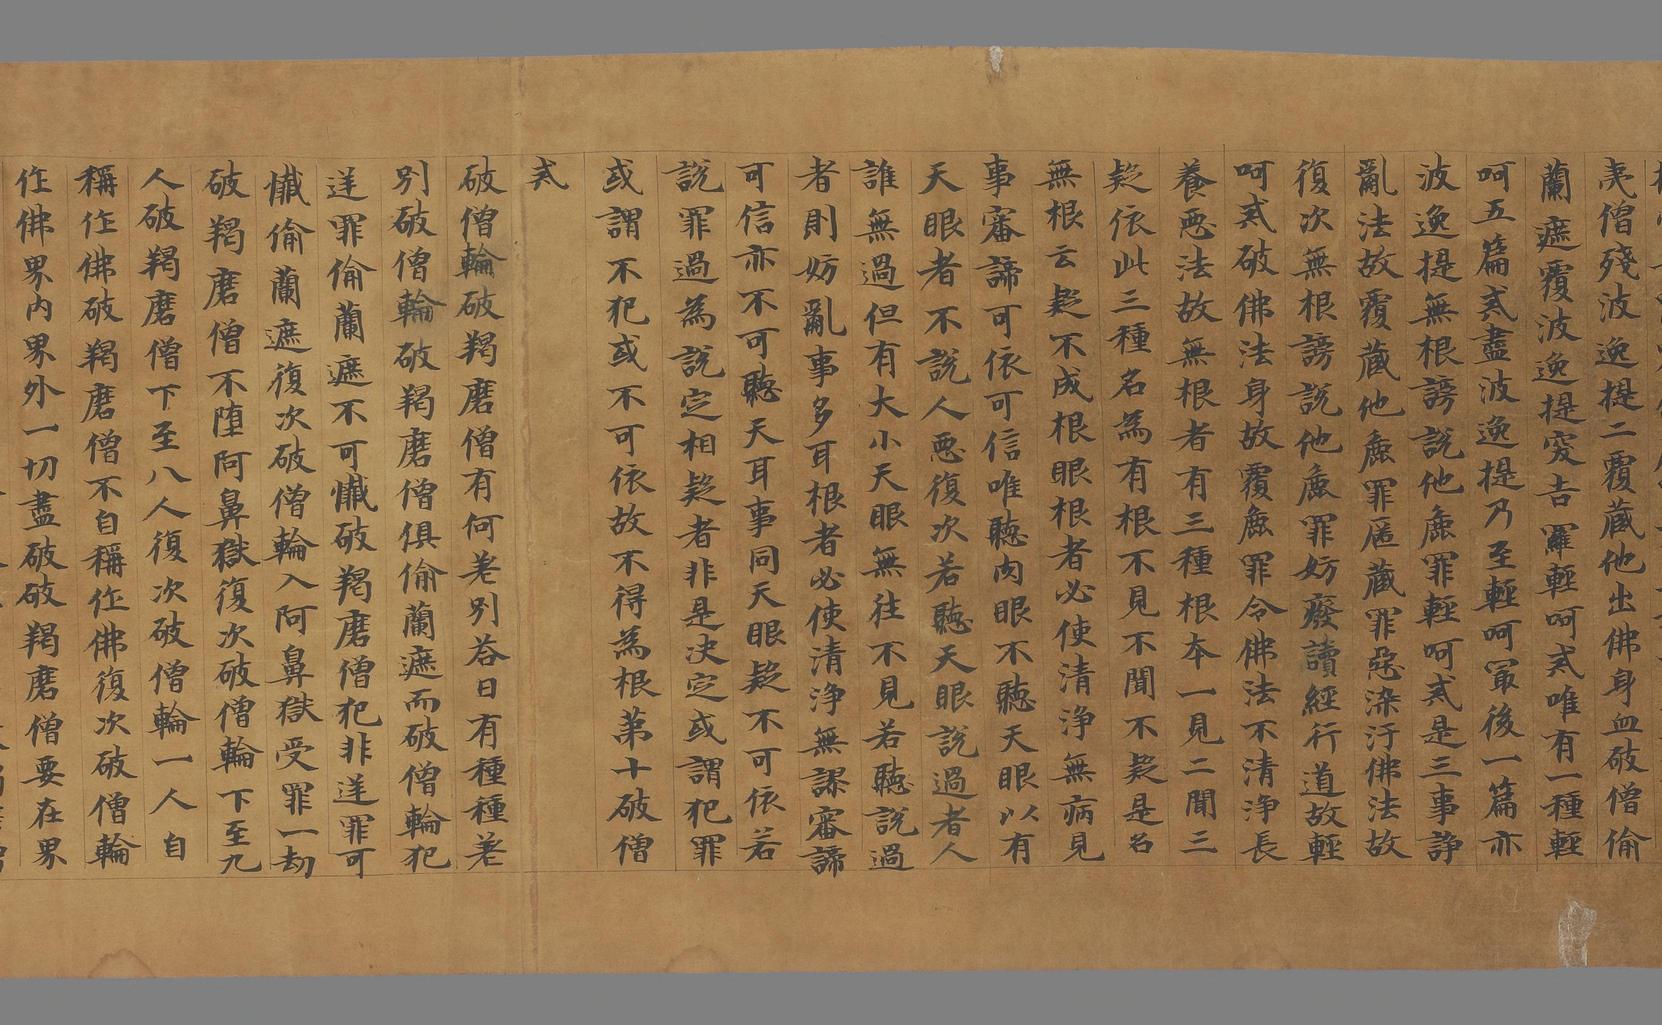 夷僧殘波逸提二覆藏他出佛身血破僧偷
蘭遮覆波逸提突吉羅輕呵戒唯有一種輕
呵五篇戒盡波逸提乃至輕呵冣後一篇亦
波逸提無根謗說他麁罪輕呵戒是三事諍
亂法故覆藏他麁罪匿藏罪惡染汙佛法故
復次無根謗說他麁罪妨癈讀經行道故輕
呵戒破佛法身故覆麁罪令佛法不清淨長
養惡法故無根者有三種根本一見二聞三
疑依此三種名為有根不見不聞不疑是名
無根云疑不成根眼根者必使清淨無病見
事審諦可依可信唯聽肉眼不聽天眼以有
天眼者不說人惡復次若聽天眼說過者人
誰無過但有大小天眼無往不見若聽說過
者則妨亂事多耳根者必使清淨無謬審諦
可信亦不可聽天耳事同天眼疑不可依若
說罪過為說定相疑者非是決定或謂犯罪
或謂不犯或不可依故不得為根苐十破僧
戒
破僧輪破羯磨僧有何差別荅曰有種種差
別破僧輪破羯磨僧俱偷蘭遮而破僧輪犯
逆罪偷蘭遮不可懴破羯磨僧犯非逆罪可
懴偷蘭遮復次破僧輪入阿鼻獄受罪一劫
破羯磨僧不堕阿鼻獄復次破僧輪下至九
人破羯磨僧下至八人復次破僧輪一人自
稱作佛破羯磨僧不自稱作佛復次破僧輪
作佛界內界外一切盡破破羯磨僧要在界